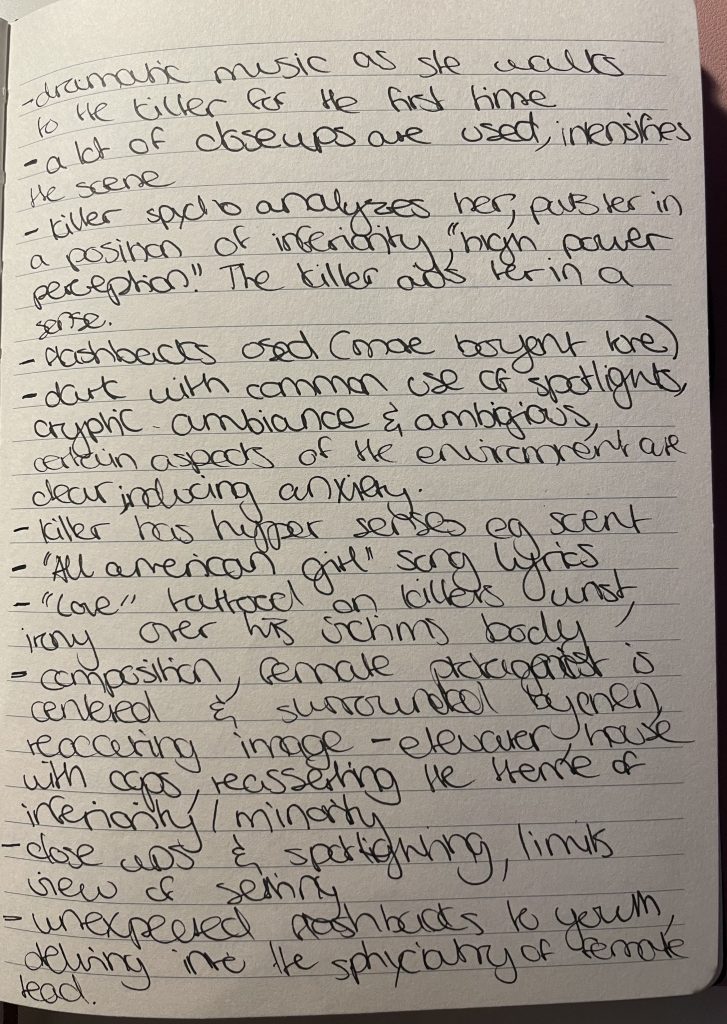 -dramatic music as she walks
to the killer for the first time
- a lot of closeups are used, intensifies
the scene
- killer spycho analyzes her, puts her in
a position of inferiority, "high power
perception." The killer aids her in a
sense.
- flashbacks used (more
- dark with common use of spotlights,
cryptic ambiance & ambigious,
certain aspects of the environment are
clear, inducing anxiety.
- killer has hyper senses eg scent
- "All american girl" song lyrics
- "Love" tattooed on killers
irony over his victims body
- composition, female protagonist is
centered & surrounded by men,
reoccuring image - elevater, house
with cops, reasserting the theme of
inferiority / minority
- close ups & spotlighning, limits
view of
- unexpected flashbacks to youth,
delving into the sphyciatry of female
lead.